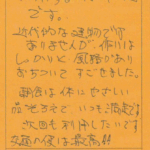 です。
近代的な建物で
ありませんが、作りは
しっかりと 風格があり
おちついてすごせました。
朝食は体にやさしい
品ぞろえで いつも満足です
次回も利用したいです